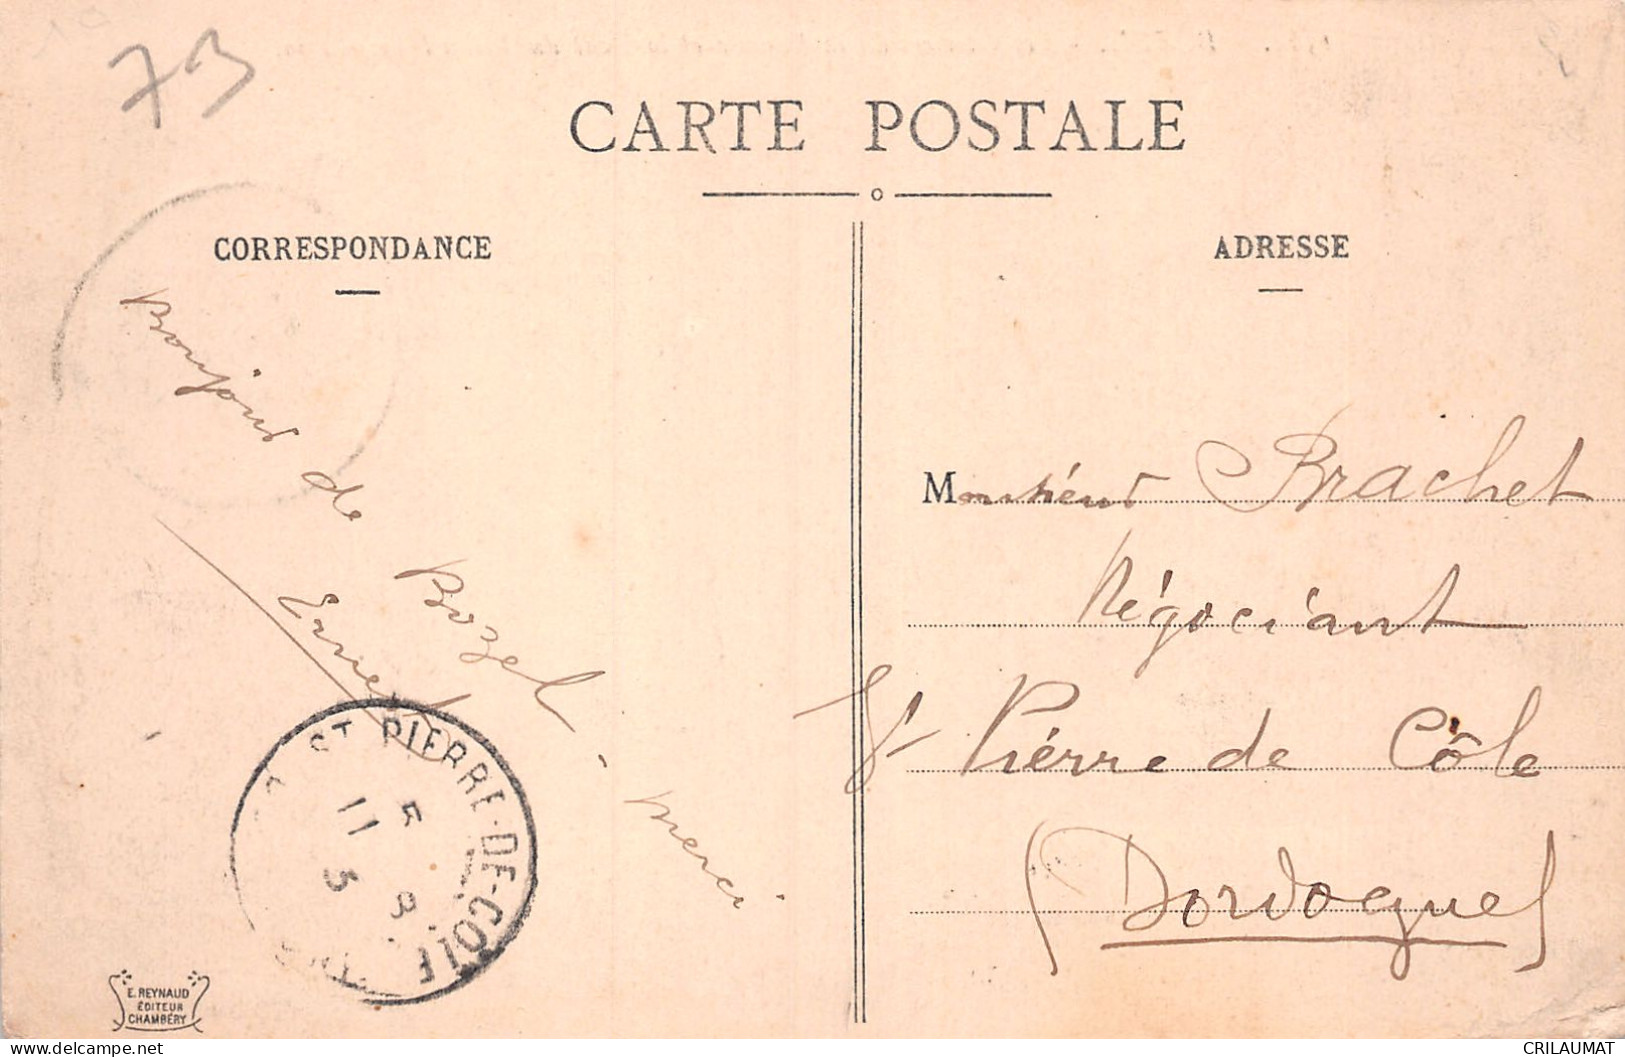 73
CARTE POSTALE
CORRESPONDANCE
ADRESSE
Bonjour de Bozel - merci
Ernest
Monsieur Brachet
Négociant
St Pierre de Côle
(Dordogne)
ST PIERRE-DE-COLE
5
11 3
5
E. REYNAUD
ÉDITEUR
CHAMBÉRY
CRILAUMAT